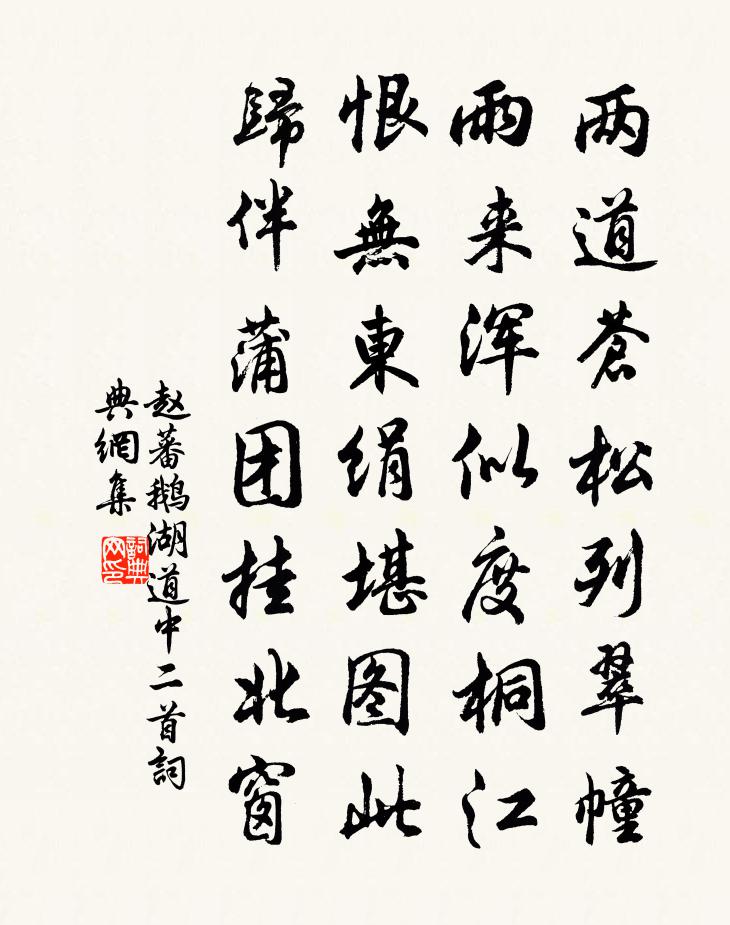 两道苍松列翠幢
雨来浑似度桐江
恨無東绢堪图此
歸伴蒲团挂北窗
赵蕃鹅湖道中二首詞
典網集
詞典网印